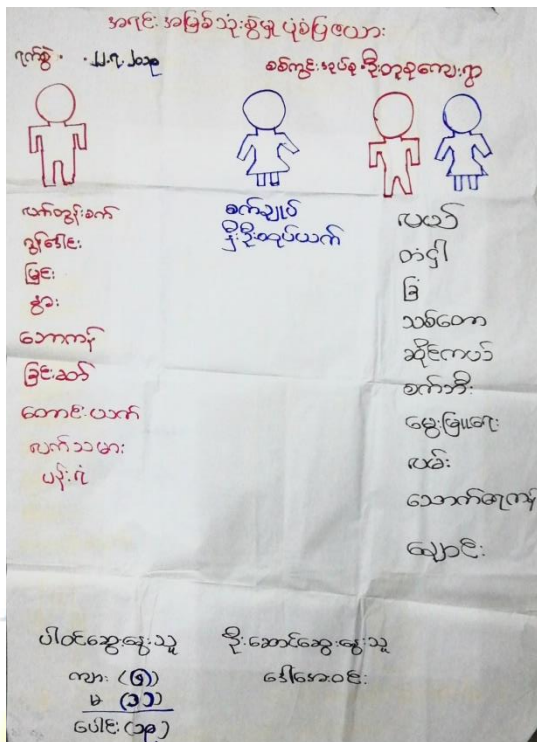 အရင်းအမြစ်သုံးစွဲမှု ပုံစံပြဇယား
ရက်စွဲ - ၂၂.၇.၂၀၁၉
စစ်ကွင်း အုပ်စု ဦးတူစုကျေးရွာ
လက်တွန်းစက်
ထွန်ခေါင်း
မြင်း
နွား
ဘောကန်
ခြင်းခတ်
တောင်းယက်
လက်သမား
ပန်းရံ
စက်ချုပ်
နှီးဦးထုပ်ယက်
လယ်
တံငါ
ခြံ
သစ်တော
ဆိုင်ကယ်
စက်ဘီး
မွေးမြူရေး
လမ်း
သောက်ရေကန်
ချောင်း
ပါဝင်ဆွေးနွေးသူ
ကျား (၆)
မ (၁၁)
ပေါင်း
ဦးဆောင်ဆွေးနွေးသူ
ဒေါ်အေးဝင်း